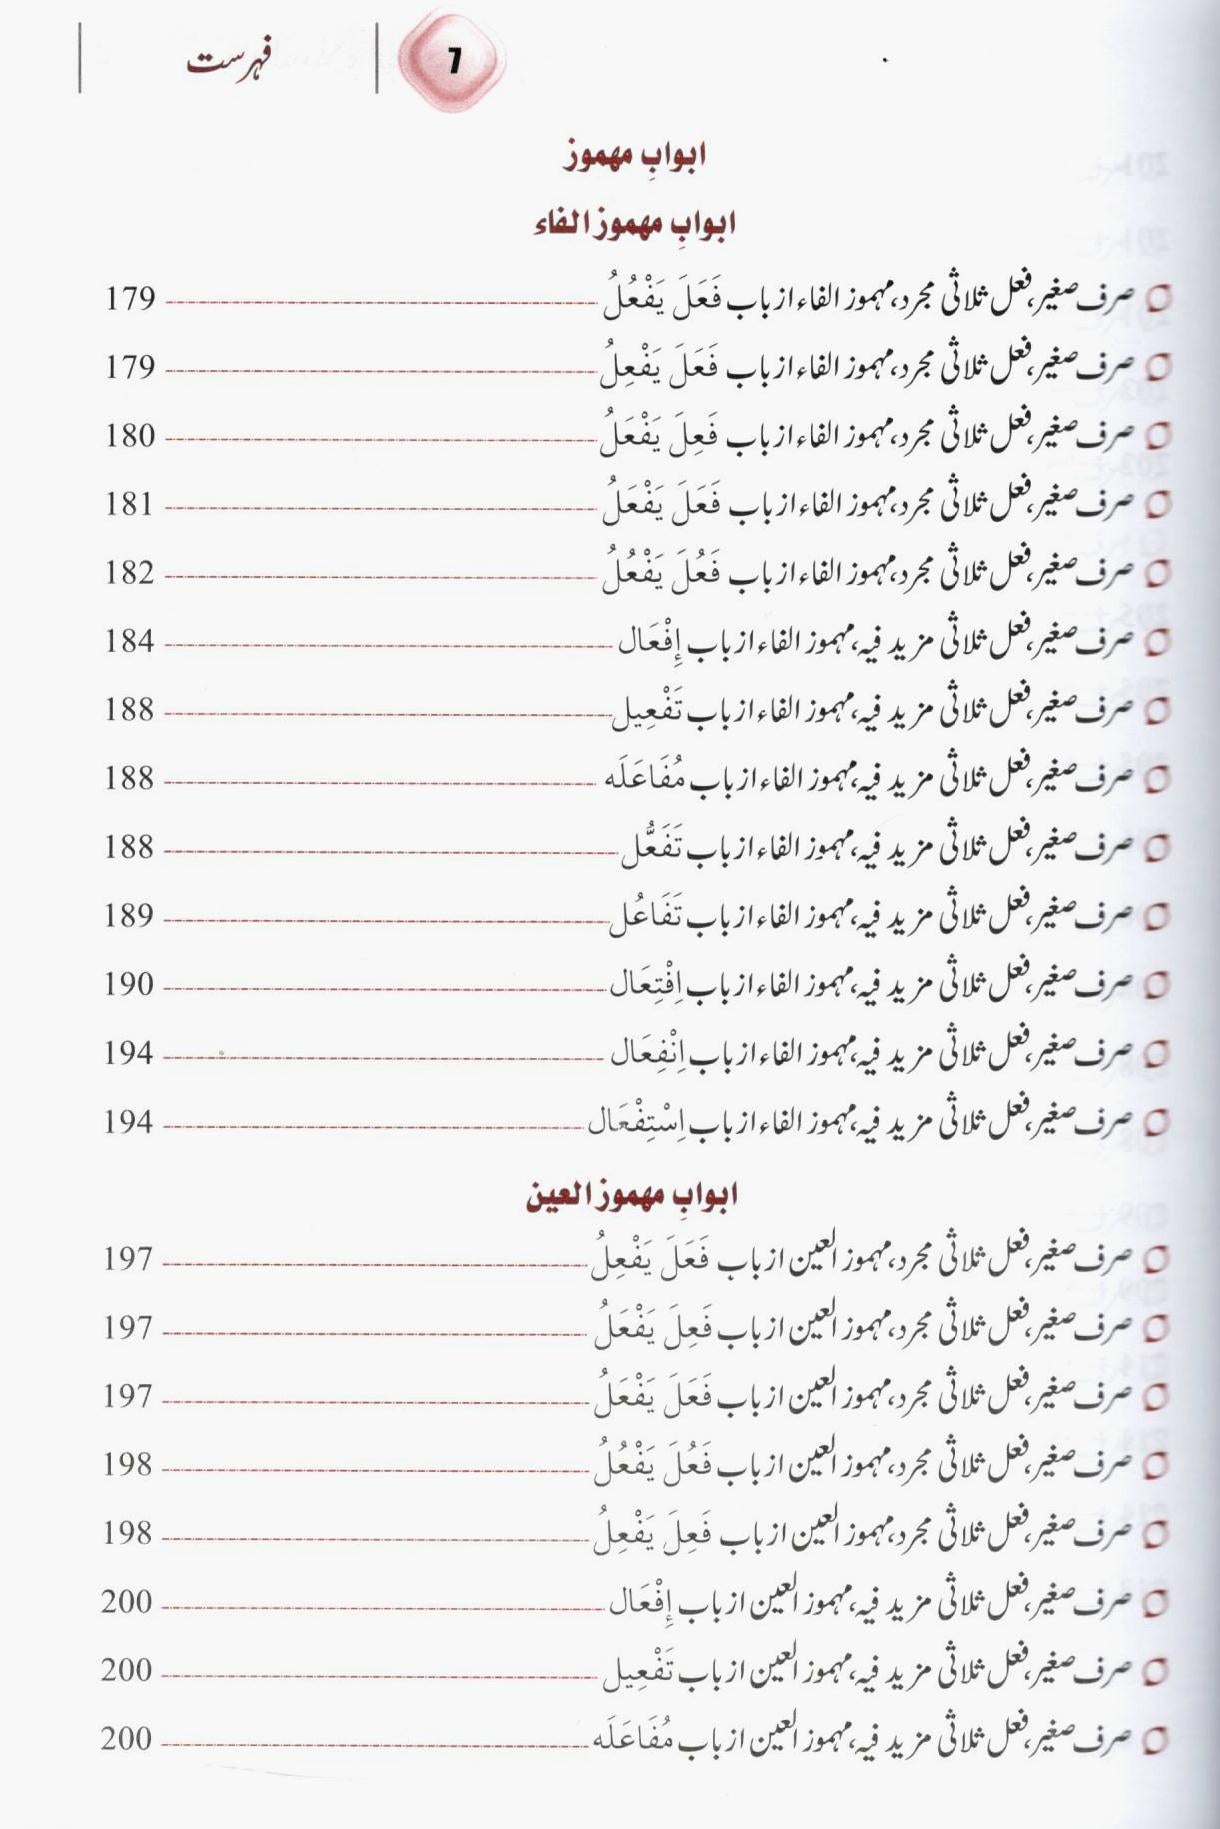 فہرست 7
ابوابِ مهموز
ابوابِ مهموز الفاء
صرف صغیر، فعل ثلاثی مجرد، مہموز الفاء از باب فَعَلَ يَفْعُلُ 179
صرف صغیر، فعل ثلاثی مجرد، مہموز الفاء از باب فَعَلَ يَفْعِلُ 179
صرف صغیر، فعل ثلاثی مجرد، مہموز الفاء از باب فَعِلَ يَفْعَلُ 180
صرف صغیر، فعل ثلاثی مجرد، مہموز الفاء از باب فَعَلَ يَفْعَلُ 181
صرف صغیر، فعل ثلاثی مجرد، مہموز الفاء از باب فَعُلَ يَفْعُلُ 182
صرف صغیر، فعل ثلاثی مزید فیہ، مہموز الفاء از باب إِفْعَال 184
صرف صغیر، فعل ثلاثی مزید فیہ، مہموز الفاء از باب تَفْعِيل 188
صرف صغیر، فعل ثلاثی مزید فیہ، مہموز الفاء از باب مُفَاعَلَه 188
صرف صغیر، فعل ثلاثی مزید فیہ، مہموز الفاء از باب تَفَعُّل 188
صرف صغیر، فعل ثلاثی مزید فیہ، مہموز الفاء از باب تَفَاعُل 189
صرف صغیر، فعل ثلاثی مزید فیہ، مہموز الفاء از باب اِفْتِعَال 190
صرف صغیر، فعل ثلاثی مزید فیہ، مہموز الفاء از باب اِنْفِعَال 194
صرف صغیر، فعل ثلاثی مزید فیہ، مہموز الفاء از باب اِسْتِفْعَال 194
ابوابِ مهموز العين
صرف صغیر، فعل ثلاثی مجرد، مہموز العین از باب فَعَلَ يَفْعِلُ 197
صرف صغیر، فعل ثلاثی مجرد، مہموز العین از باب فَعِلَ يَفْعَلُ 197
صرف صغیر، فعل ثلاثی مجرد، مہموز العین از باب فَعَلَ يَفْعَلُ 197
صرف صغیر، فعل ثلاثی مجرد، مہموز العین از باب فَعُلَ يَفْعُلُ 198
صرف صغیر، فعل ثلاثی مجرد، مہموز العین از باب فَعِلَ يَفْعِلُ 198
صرف صغیر، فعل ثلاثی مزید فیہ، مہموز العین از باب إِفْعَال 200
صرف صغیر، فعل ثلاثی مزید فیہ، مہموز العین از باب تَفْعِيل 200
صرف صغیر، فعل ثلاثی مزید فیہ، مہموز العین از باب مُفَاعَلَه 200